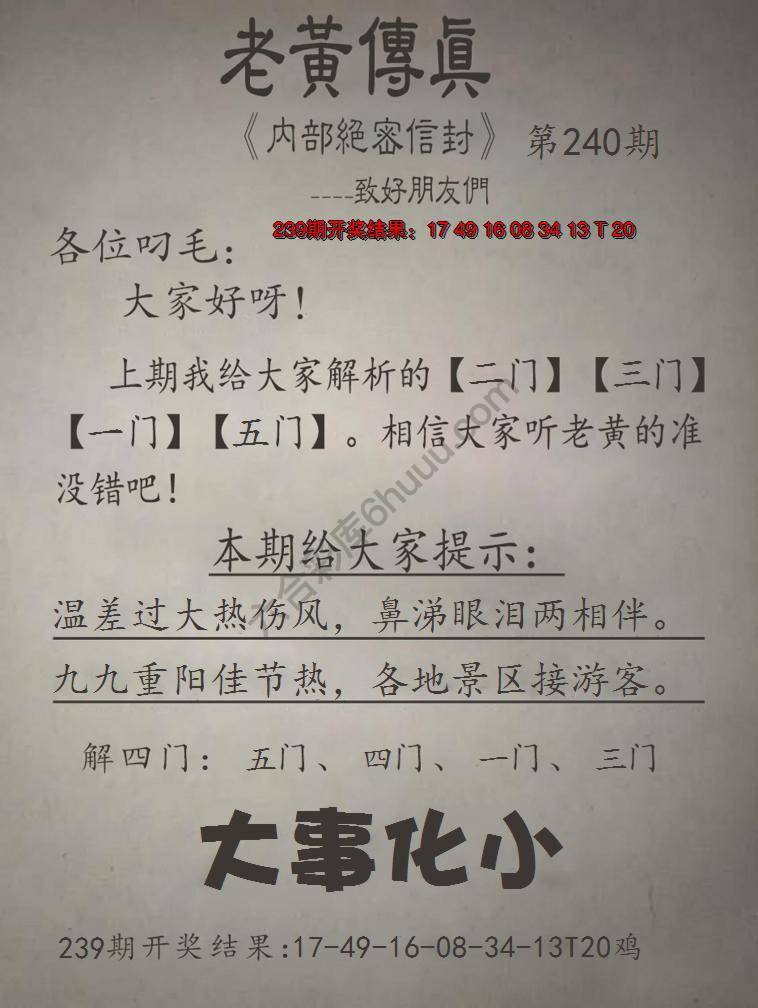 老黃傳眞
《内部絕密信封》 第240期
----致好朋友們
239期开奖结果：17 49 16 08 34 13 T 20
各位叼毛：
大家好呀！
上期我给大家解析的【二门】【三门】
【一门】【五门】。相信大家听老黄的准
没错吧！
本期给大家提示：
温差过大热伤风，鼻涕眼泪两相伴。
九九重阳佳节热，各地景区接游客。
解四门：五门、四门、一门、三门
大事化小
239期开奖结果:17-49-16-08-34-13T20鸡
六合彩库6huuu.com